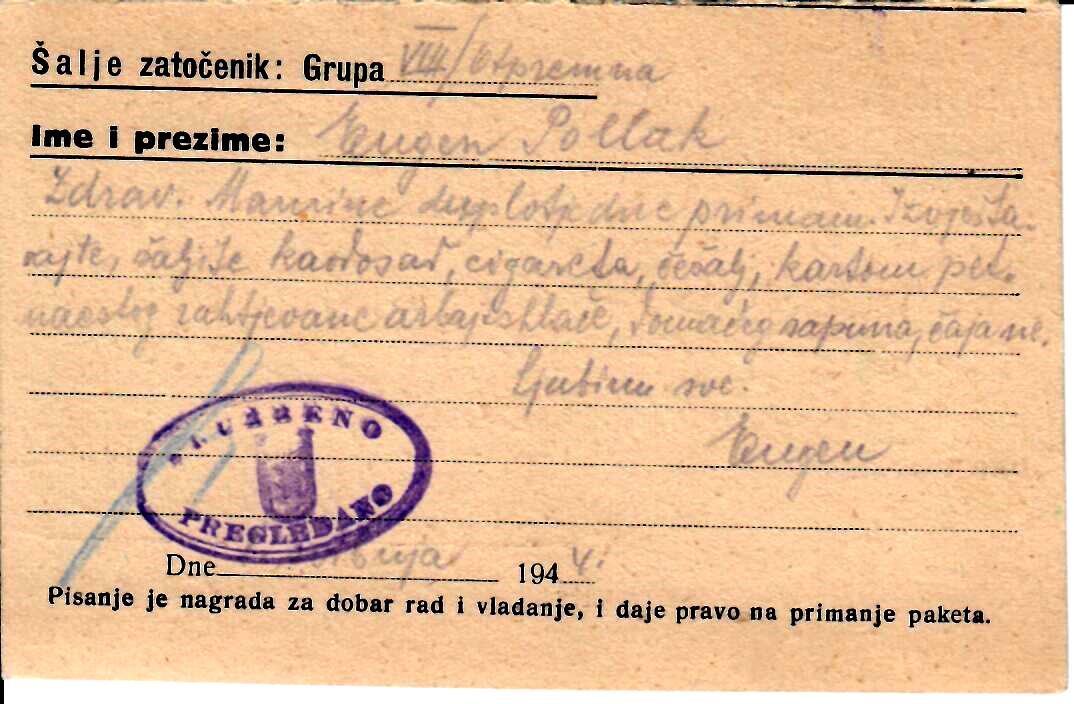 Šalje zatočenik: Grupa VIII/Otpremna
Ime i prezime: Eugen Pollak
Zdrav. Mamine primam. Izvješta-
vajte, šaljite cigareta, češalj, karton pet-
naestog zahtjevane domaćeg sapuna, čaja
Ljubim sve.
Eugen
SLUŽBENO
PREGLEDANO
Dne 194 4.
Pisanje je nagrada za dobar rad i vladanje, i daje pravo na primanje paketa.